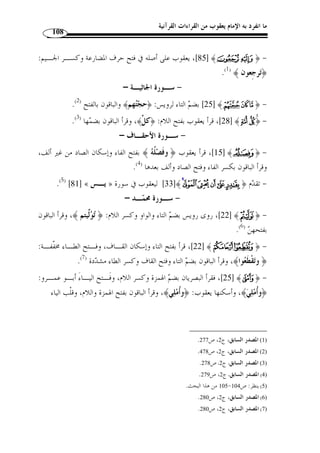 ما انفرد به الإمام يعقوب من القراءات القرآنية
108
- ﴿ وَإِلَيْهِ تُرْجَعُونَ ﴾ [85]، يعقوب على أصله في فتح حرف المضارعة وكسر الجيم:
﴿ تَرجِعون ﴾ (1).
– سورة الجاثية –
- ﴿ مَّا كَانَ حُجَّتَهُمْ ﴾ [25] بضمّ التاء لرويس: ﴿ حجتُهم ﴾ والباقون بالفتح (2).
- ﴿ كُلُّ أُمَّةٍ ﴾ [28]، قرأ يعقوب بفتح اللام: ﴿ كلَّ ﴾، وقرأ الباقون بضمّها (3).
– سورة الأحقاف –
- ﴿ وَفِصَٰلُهُۥ ﴾ [15]، قرأ يعقوب ﴿ وَفَصْلُهُ ﴾ بفتح الفاء وإسكان الصاد من غير ألف،
وقرأ الباقون بكسر الفاء وفتح الصاد وألف بعدها (4).
- تقدّم ﴿ بِقَٰدِرٍ عَلَىٰٓ أَن يُحْـِۧىَ ٱلْمَوْتَىٰ ﴾ [33] ليعقوب في سورة « يــس » [81] (5).
– سورة محمّد –
- ﴿ تَوَلَّيْتُمْ ﴾ [22]، روى رويس بضمّ التاء والواو وكسر اللام: ﴿ تُوُلِّيتم ﴾، وقرأ الباقون
بفتحهنّ (6).
- ﴿ وَتُقَطِّعُوٓا۟ أَرْحَامَكُمْ ﴾ [22]، قرأ بفتح التاء وإسكان القاف، وفتح الطاء مخفّفة:
﴿ وتَقْطَعُوا ﴾، وقرأ الباقون بضمّ التاء وفتح القاف وكسر الطاء مشدّدة (7).
- ﴿ وَأَمْلَىٰ ﴾ [25]، فقرأ البصريان بضمّ الهمزة وكسر اللام، وفتح الياء أبو عمرو:
﴿ وَأُمْلِيَ ﴾، وأسكنها يعقوب: ﴿ وَأُمْلِي ﴾، وقرأ الباقون بفتح الهمزة واللام، وقلْب الياء
(1) المصدر السابق، ج2، ص277.
(2) المصدر السابق، ج2، ص478.
(3) المصدر السابق، ج2، ص278.
(4) المصدر السابق، ج2، ص279.
(5) ينظر: ص104-105 من هذا البحث.
(6) المصدر السابق، ج2، ص280.
(7) المصدر السابق، ج2، ص280.